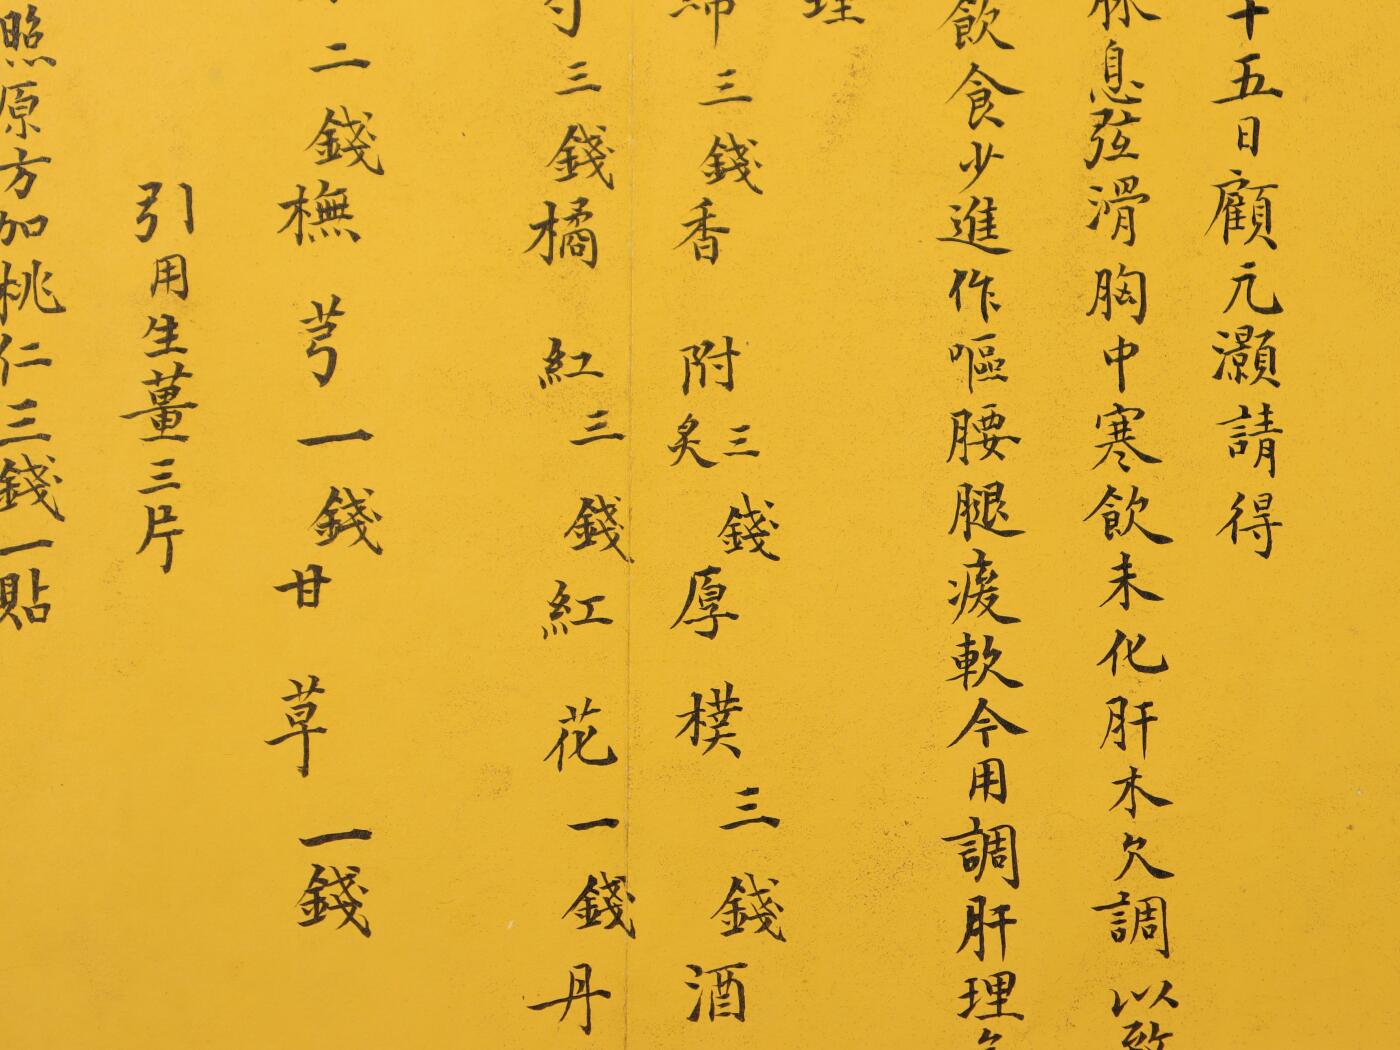 十五日顧元灝請得
脉息弦滑胸中寒飲未化肝木欠調以致
飲食少進作嘔腰腿痠軟今用調肝理
理
歸三錢香附炙三錢厚樸三錢酒
芍三錢橘紅三錢紅花一錢丹
二錢撫芎一錢甘草一錢
引用生薑三片
照原方加桃仁三錢一貼